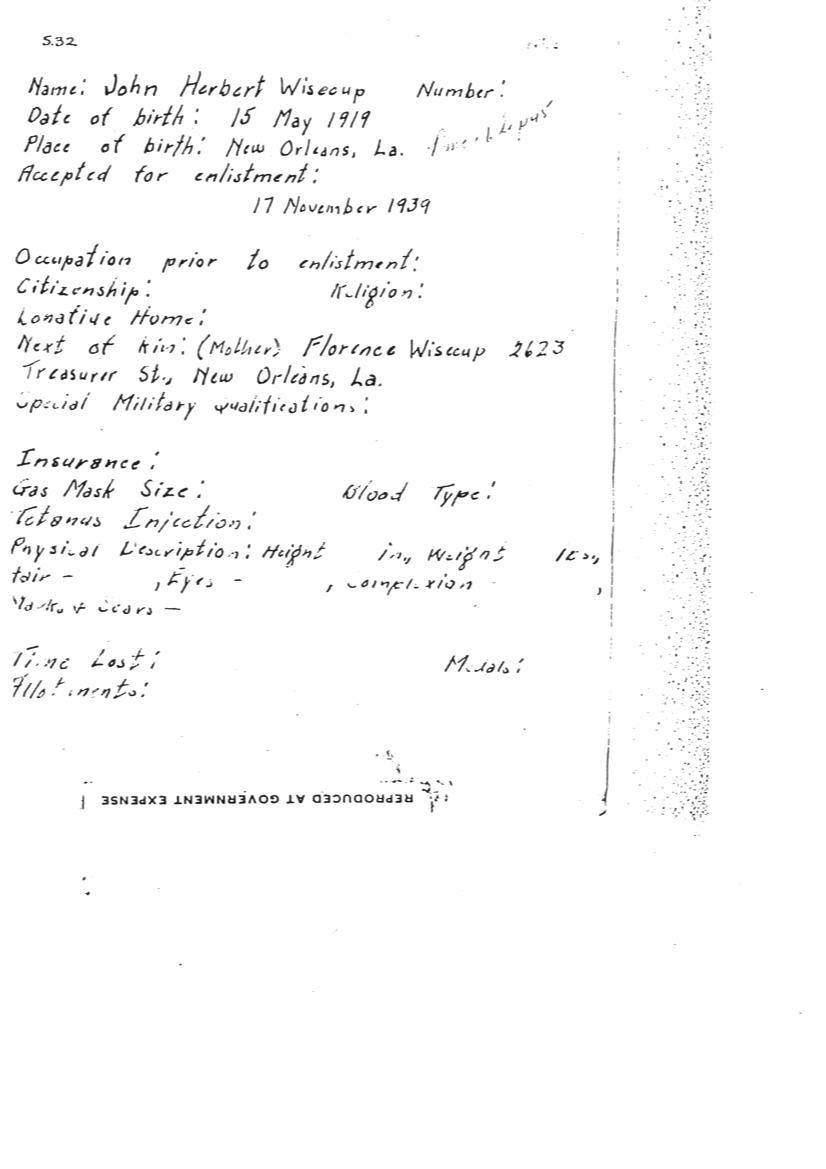 S.32
Name: John Herbert Wisecup Number:
Date of birth: 15 May 1919
Place of birth: New Orleans, La.
Accepted for enlistment:
17 November 1939
Occupation prior to enlistment:
Citizenship: Religion:
Lonative Home:
Next of kin: (Mother) Florence Wisecup 2623
Treasurer St., New Orleans, La.
Special Military qualifications:
Insurance:
Gas Mask Size: Blood Type:
Tetanus Injection:
Physical Description: Height in., Weight lbs.,
Hair - , Eyes - , Complexion ,
Marks & Scars -
Time Lost: Medals:
Allotments:
REPRODUCED AT GOVERNMENT EXPENSE